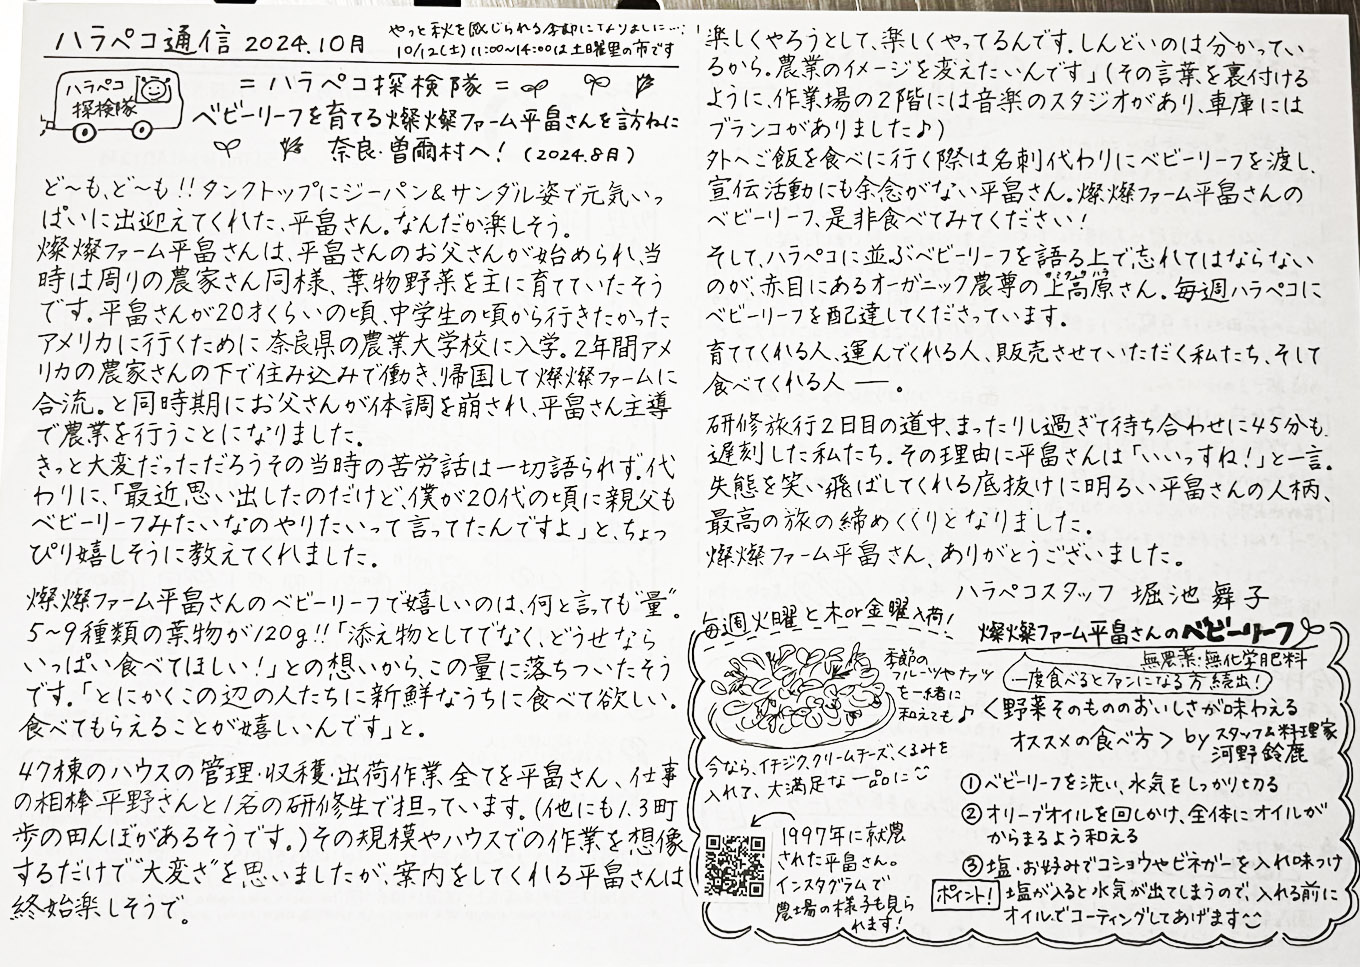 ハラペコ通信 2024.10月
やっと秋を感じられる季節になりました…!
10/12(土)11:00~14:00は土曜里の市です
ハラペコ
探検隊
=ハラペコ探検隊=
ベビーリーフを育てる燦燦ファーム平畠さんを訪ねに
奈良・曽爾村へ!(2024.8月)
ど〜も、ど〜も!!タンクトップにジーパン&サンダル姿で元気いっ
ぱいに出迎えてくれた、平畠さん。なんだか楽しそう。
燦燦ファーム平畠さんは、平畠さんのお父さんが始められ、当
時は周りの農家さん同様、葉物野菜を主に育てていたそう
です。平畠さんが20才くらいの頃、中学生の頃から行きたかった
アメリカに行くために奈良県の農業大学校に入学。2年間アメ
リカの農家さんの下で住み込みで働き、帰国して燦燦ファームに
合流。と同時期にお父さんが体調を崩され、平畠さん主導
で農業を行うことになりました。
きっと大変だっただろうその当時の苦労話は一切語られず。代
わりに、「最近思い出したのだけど、僕が20代の頃に親父も
ベビーリーフみたいなのやりたいって言ってたんですよ」と、ちょっ
ぴり嬉しそうに教えてくれました。
燦燦ファーム平畠さんのベビーリーフで嬉しいのは、何と言っても“量”。
5~9種類の葉物が120g!!「添え物としてでなく、どうせなら
いっぱい食べてほしい!」との想いから、この量に落ちついたそう
です。「とにかくこの辺の人たちに新鮮なうちに食べて欲しい。
食べてもらえることが嬉しいんです」と。
47棟のハウスの管理・収穫・出荷作業、全てを平畠さん、仕事
の相棒平野さんと1名の研修生で担っています。(他にも1.3町
歩の田んぼがあるそうです。)その規模やハウスでの作業を想像
するだけで“大変さ”を思いましたが、案内をしてくれる平畠さんは
終始楽しそうで。
楽しくやろうとして、楽しくやってるんです。しんどいのは分かってい
るから。農業のイメージを変えたいんです」(その言葉を裏付ける
ように、作業場の2階には音楽のスタジオがあり、車庫には
ブランコがありました♪)
外へご飯を食べに行く際は名刺代わりにベビーリーフを渡し、
宣伝活動にも余念がない平畠さん。燦燦ファーム平畠さんの
ベビーリーフ、是非食べてみてください!
そして、ハラペコに並ぶベビーリーフを語る上で忘れてはならない
のが、赤目にあるオーガニック農専の上高原さん。毎週ハラペコに
ベビーリーフを配達してくださっています。
育ててくれる人、運んでくれる人、販売させていただく私たち、そして
食べてくれる人 ―。
研修旅行2日目の道中、まったりし過ぎて待ち合わせに45分も
遅刻した私たち。その理由に平畠さんは「いいっすね!」と一言。
失態を笑い飛ばしてくれる底抜けに明るい平畠さんの人柄、
最高の旅の締めくくりとなりました。
燦燦ファーム平畠さん、ありがとうございました。
ハラペコスタッフ 堀池 舞子
毎週火曜と木or金曜入荷!
季節の
フルーツやナッツ
を一緒に
和えても♪
今なら、イチジク、クリームチーズ、くるみを
入れて、大満足な一品に
1997年に就農
された平畠さん。
インスタグラムで
農場の様子も見ら
れます!
燦燦ファーム平畠さんのベビーリーフ
無農薬・無化学肥料
一度食べるとファンになる方続出!
<野菜そのもののおいしさが味わえる
オススメの食べ方> by スタッフ&料理家
河野鈴鹿
①ベビーリーフを洗い、水気をしっかり切る
②オリーブオイルを回しかけ、全体にオイルが
からまるよう和える
③塩・お好みでコショウやビネガーを入れ味つけ
ポイント! 塩が入ると水気が出てしまうので、入れる前に
オイルでコーティングしてあげます